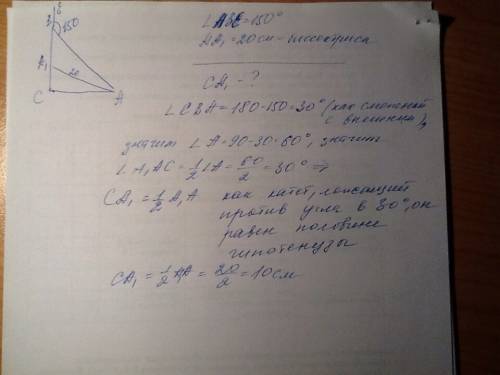 б
B 150
A₁ 20
C A
∠ABC=150°
AA₁=20см-биссектриса
CA₁-?
∠CBA=180-150=30° (как смежный
с внешним),
значит ∠A=90-30=60°, значит
∠A₁AC=1/2∠A=60/2=30° ⇒
CA₁=1/2A₁A как катет, лежащий
против угла в 30°, он
равен половине
гипотенузы
CA₁=1/2A₁A=20/2=10см